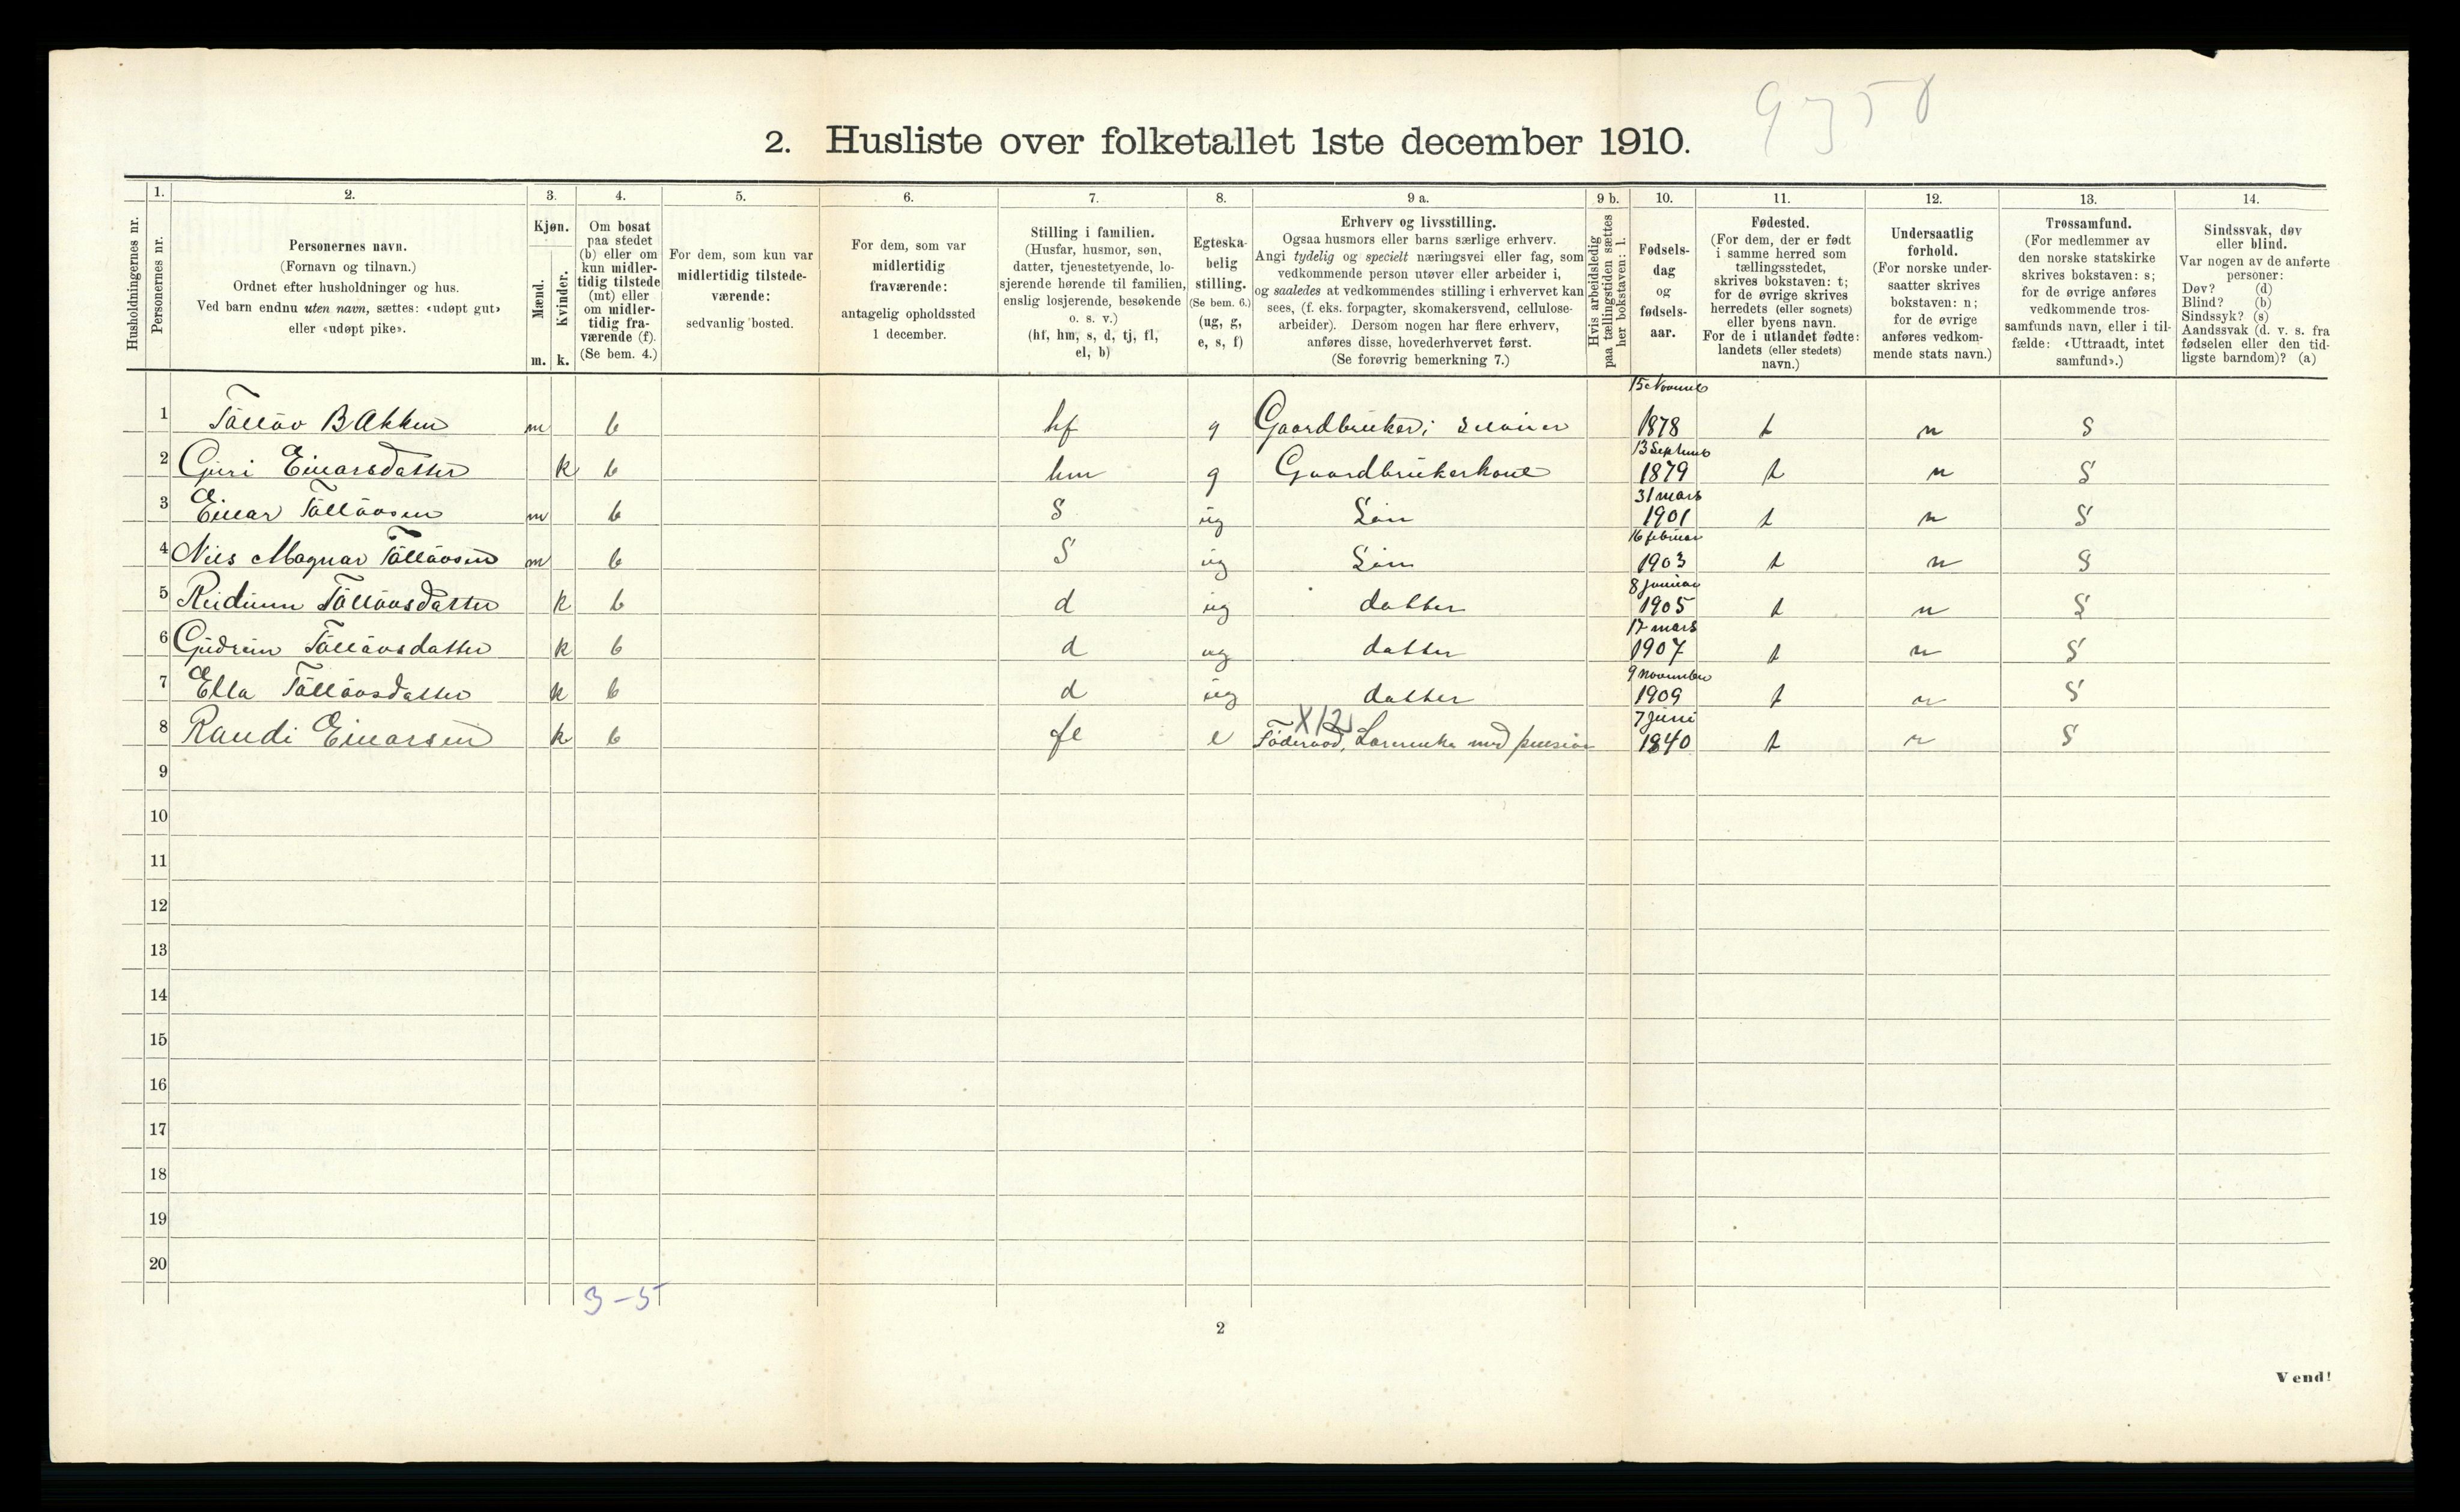 2. Husliste over folketallet 1ste december 1910.
Husholdningernes nr.
1. Personernes nr.
2. Personernes navn.
(Fornavn og tilnavn.)
Ordnet efter husholdninger og hus.
Ved barn endnu uten navn, sættes: «udøpt gut»
eller «udøpt pike».
3. Kjøn.
Mænd. m.
Kvinder. k.
4. Om bosat
paa stedet
(b) eller om
kun midler-
tidig tilstede
(mt) eller
om midler-
tidig fra-
værende (f).
(Se bem. 4.)
5. For dem, som kun var
midlertidig tilstede-
værende:
sedvanlig bosted.
6. For dem, som var
midlertidig
fraværende:
antagelig opholdssted
1 december.
7. Stilling i familien.
(Husfar, husmor, søn,
datter, tjenestetyende, lo-
sjerende hørende til familien,
enslig losjerende, besøkende
o. s. v.)
(hf, hm, s, d, tj, fl,
el, b)
8. Egteska-
belig
stilling.
(Se bem. 6.)
(ug, g,
e, s, f)
9 a. Erhverv og livsstilling.
Ogsaa husmors eller barns særlige erhverv.
Angi tydelig og specielt næringsvei eller fag, som
vedkommende person utøver eller arbeider i,
og saaledes at vedkommendes stilling i erhvervet kan
sees, (f. eks. forpagter, skomakersvend, cellulose-
arbeider). Dersom nogen har flere erhverv,
anføres disse, hovederhvervet først.
(Se forøvrig bemerkning 7.)
9 b. Hvis arbeidsledig
paa tællingstiden sættes
her bokstaven: l.
10. Fødsels-
dag
og
fødsels-
aar.
11. Fødested.
(For dem, der er født
i samme herred som
tællingsstedet,
skrives bokstaven: t;
for de øvrige skrives
herredets (eller sognets)
eller byens navn.
For de i utlandet fødte:
landets (eller stedets)
navn.)
12. Undersaatlig
forhold.
(For norske under-
saatter skrives
bokstaven: n;
for de øvrige
anføres vedkom-
mende stats navn.)
13. Trossamfund.
(For medlemmer av
den norske statskirke
skrives bokstaven: s;
for de øvrige anføres
vedkommende tros-
samfunds navn, eller i til-
fælde: «Uttraadt, intet
samfund».)
14. Sindssvak, døv
eller blind.
Var nogen av de anførte
personer:
Døv? (d)
Blind? (b)
Sindssyk? (s)
Aandssvak (d. v. s. fra
fødselen eller den tid-
ligste barndom)? (a)
1 Tøllöv B Akken m b hf g Gaardbruker i 1878 t n S
2 Guri Einarsdatter k b hm g Gaardbrukerkone 13 Septemb 1879 t n S
3 Einar Tøllövsen m b S ug Sön 31 mars 1901 t n S
4 Nils Magnar Tøllövsen m b S ug Sön 16 februar 1903 t n S
5 Reidunn Tøllövsdatter k b d ug datter 8 januar 1905 t n S
6 Gudrun Tøllövsdatter k b d ug datter 17 mars 1907 t n S
7 Ella Tøllövsdatter k b d ug datter 9 november 1909 t n S
8 Randi Einarsen k b fl e Föderaad, med pension 7 Juni 1840 t n S
9
10
11
12
13
14
15
16
17
18
19
20
3-5
2
Vend!